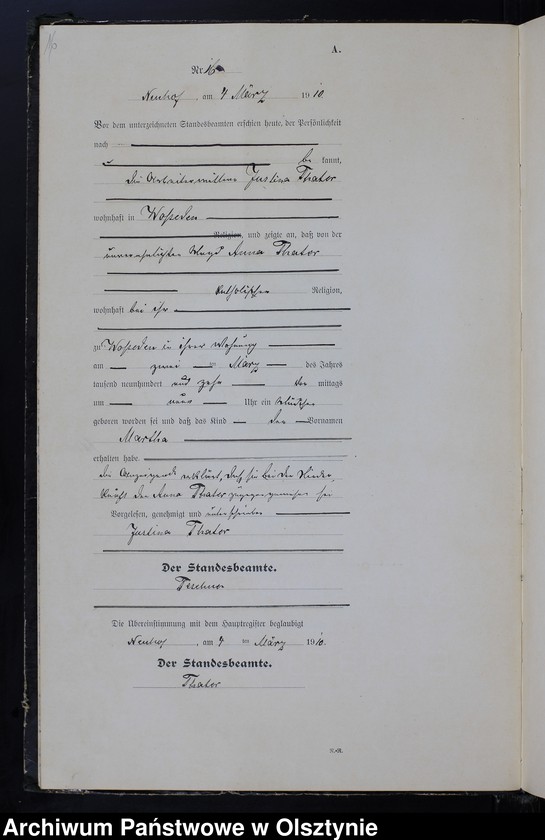 A.
Nr. 16
Neuhof, am 4 März 1910
Vor dem unterzeichneten Standesbeamten erschien heute, der Persönlichkeit
nach
be kannt,
die Arbeiterwittwe Justina Thator
wohnhaft in Woheden
Religion, und zeigte an, daß von der
unverehelichten Magd Anna Thator
katholischer Religion,
wohnhaft bei ihr
zu Woheden in ihrer Wohnung
am zwei ten März des Jahres
tausend neunhundert und zehn mittags
um neun Uhr ein
geboren worden sei und daß das Kind den Vornamen
Martha
erhalten habe
die Anzeigende erklärt, daß sie bei der Nieder-
kunft der Anna Thator zugegen gewesen sei
Vorgelesen, genehmigt und unterschrieben
Justina Thator
Der Standesbeamte.
Die Übereinstimmung mit dem Hauptregister beglaubigt
Neuhof, am 4 ten März 1910.
Der Standesbeamte.
Thator
Archiwum Państwowe w Olsztynie